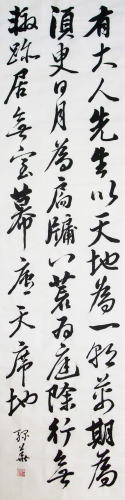 有大人先生以天地為一朝萬期為
須臾日月為扃牖八荒為庭除行無
轍跡居無室幕廬天席地